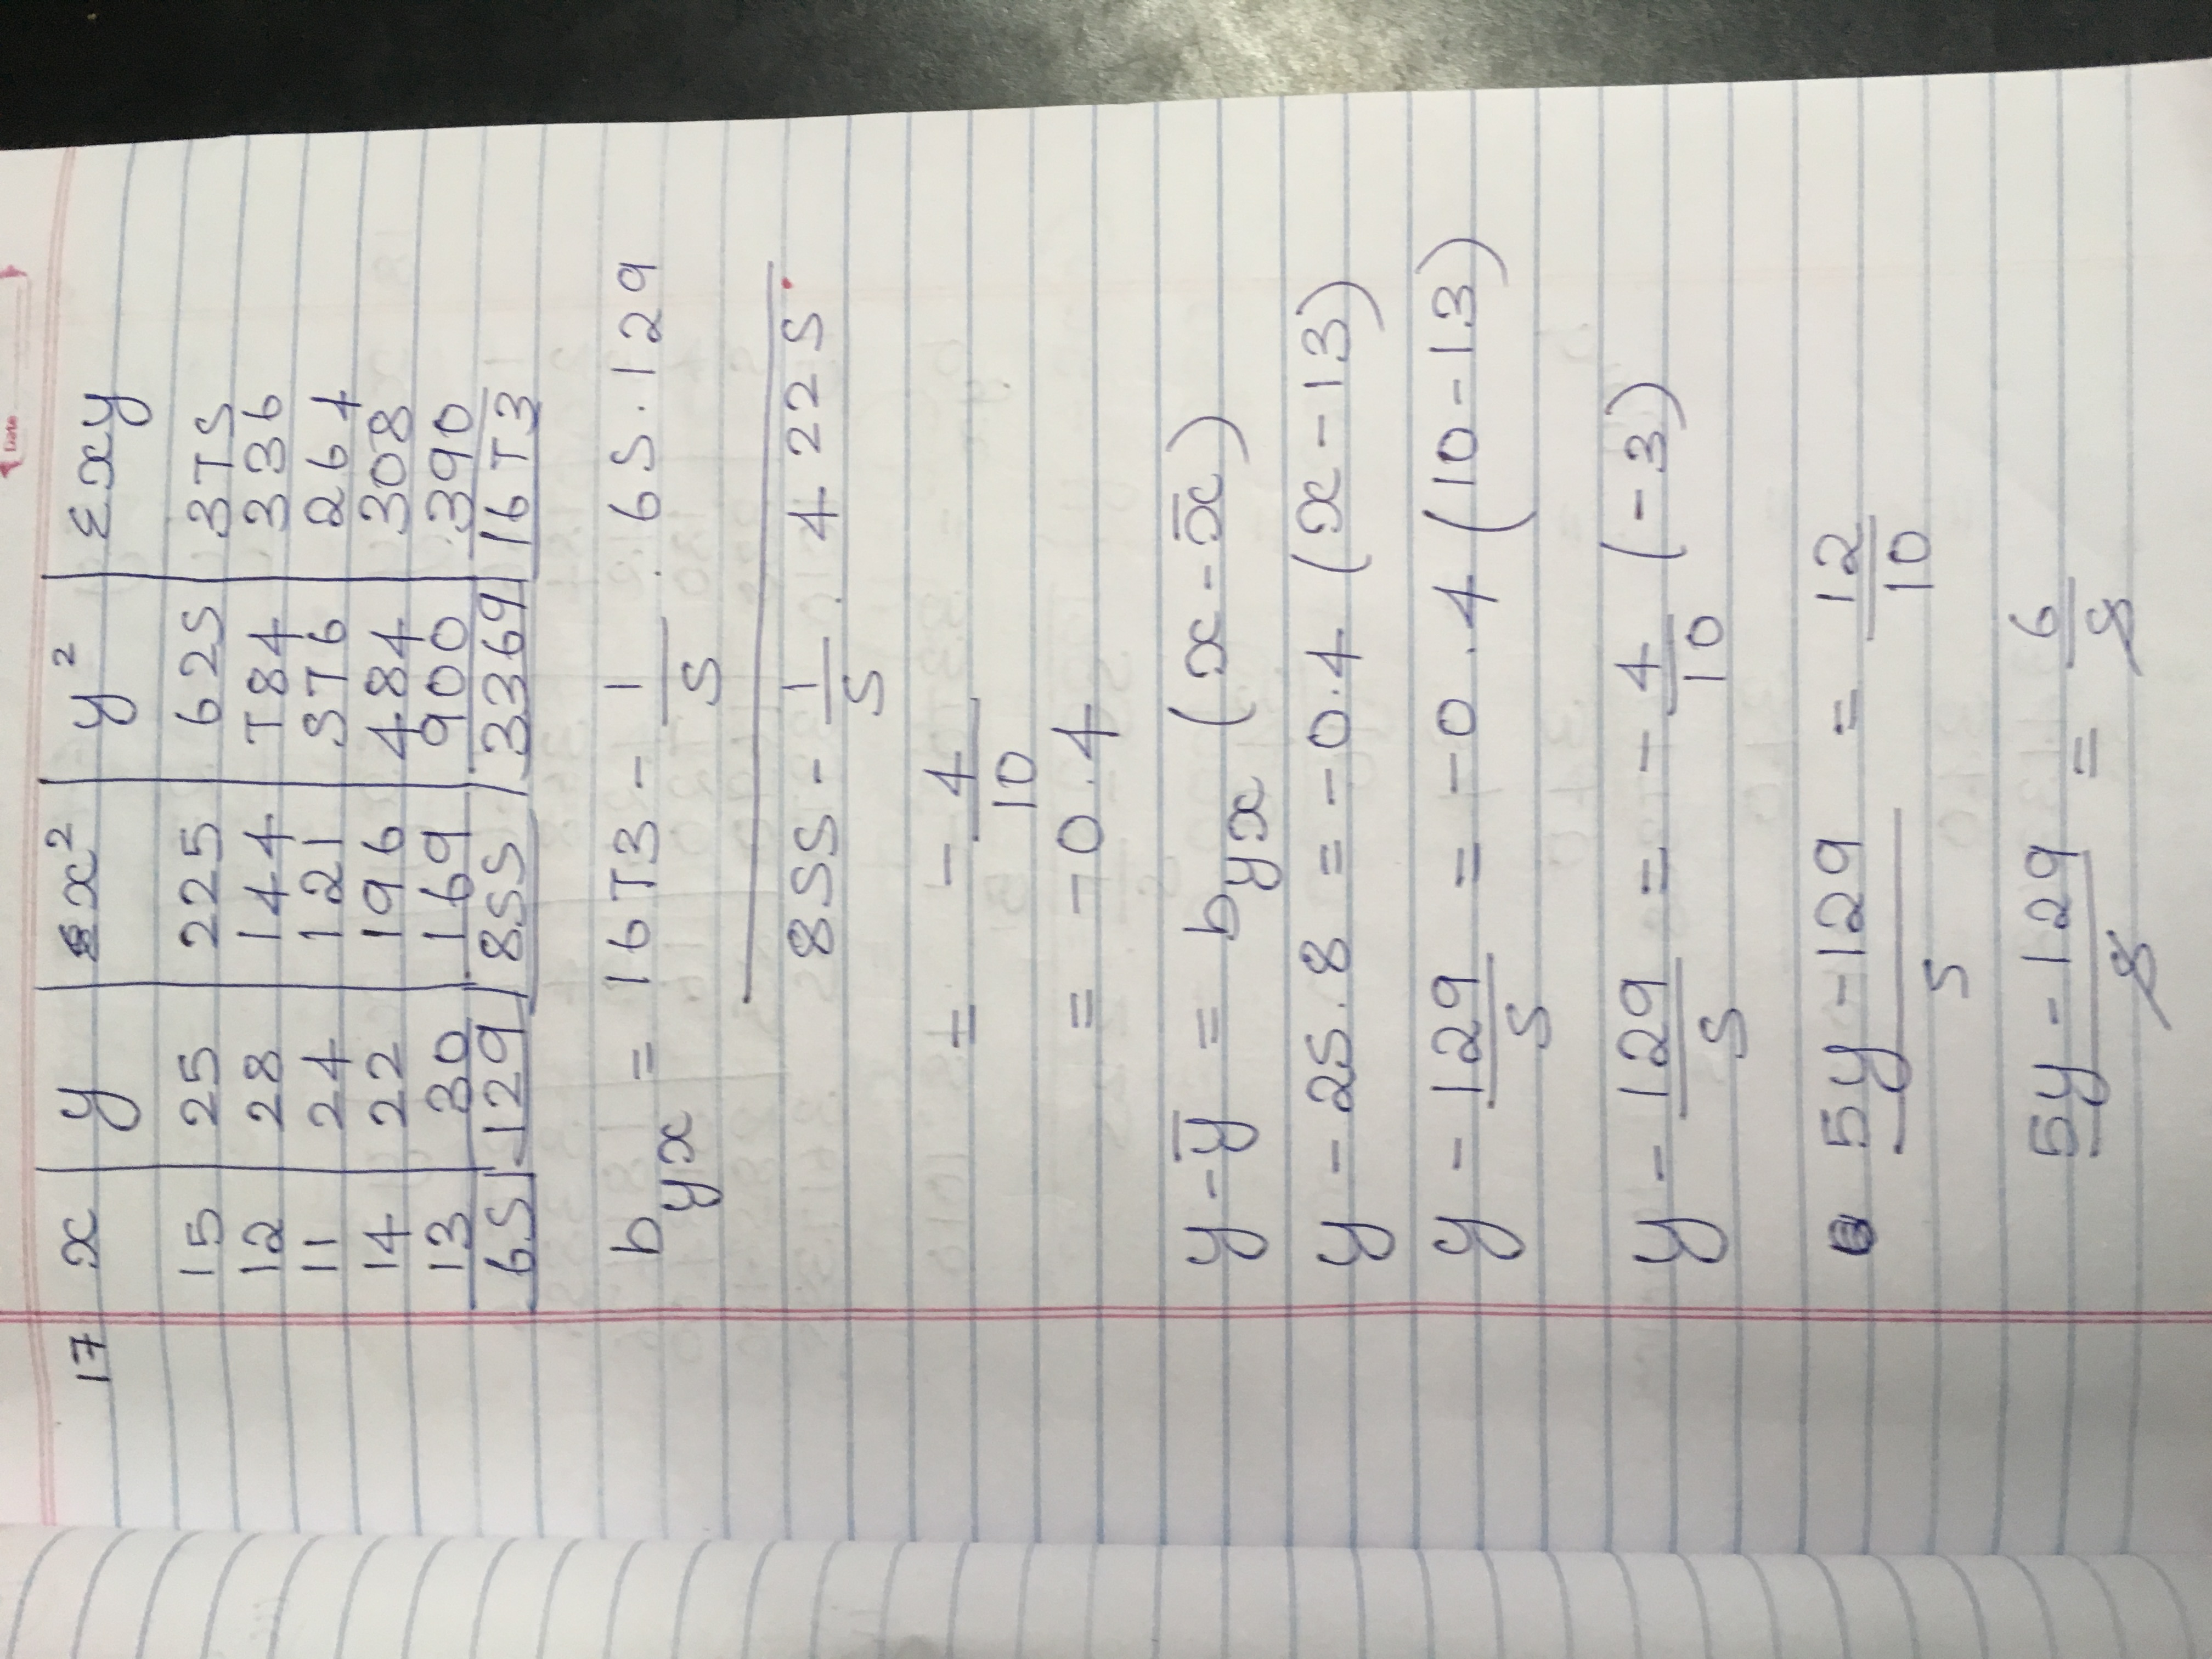 Date
17 x y Σx² y² Σxy
15 25 225 625 375
12 28 144 784 336
11 24 121 576 264
14 22 196 484 308
13 30 169 900 390
65 129 855 3369 1673
b_yx = 1673 - 1/5 . 65.129
855 - 1/5 . 4225
= -4/10
= -0.4
y - ȳ = b_yx (x - x̄)
y - 25.8 = -0.4 (x - 13)
y - 129/5 = -0.4 (10 - 13)
y - 129/5 = -4/10 (-3)
5y - 129/5 = 12/10
5y - 129/5 = 6/5